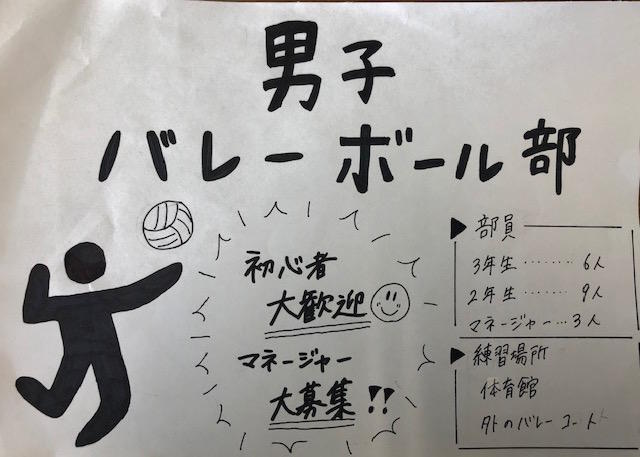 男子
バレーボール部
初心者
大歓迎
マネージャー
大募集!!
▶部員
3年生………6人
2年生………9人
マネージャー…3人
▶練習場所
体育館
外のバレーコート